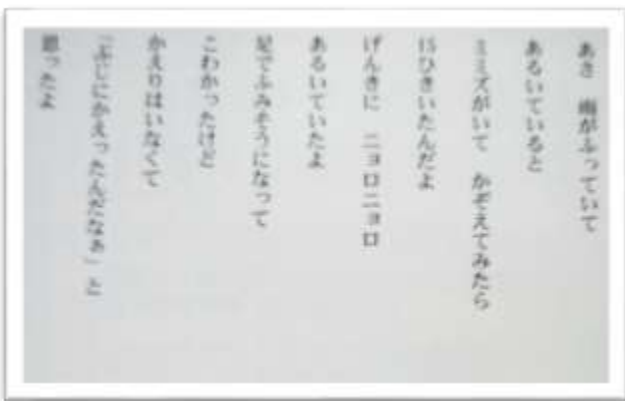 あさ　雨がふっていて
あるいていると
ミミズがいて　かぞえてみたら
15ひきいたんだよ
げんきに　ニョロニョロ
あるいていたよ
足でふみそうになって
こわかったけど
かえりはいなくて
「ぶじにかえったんだなぁ」と
思ったよ